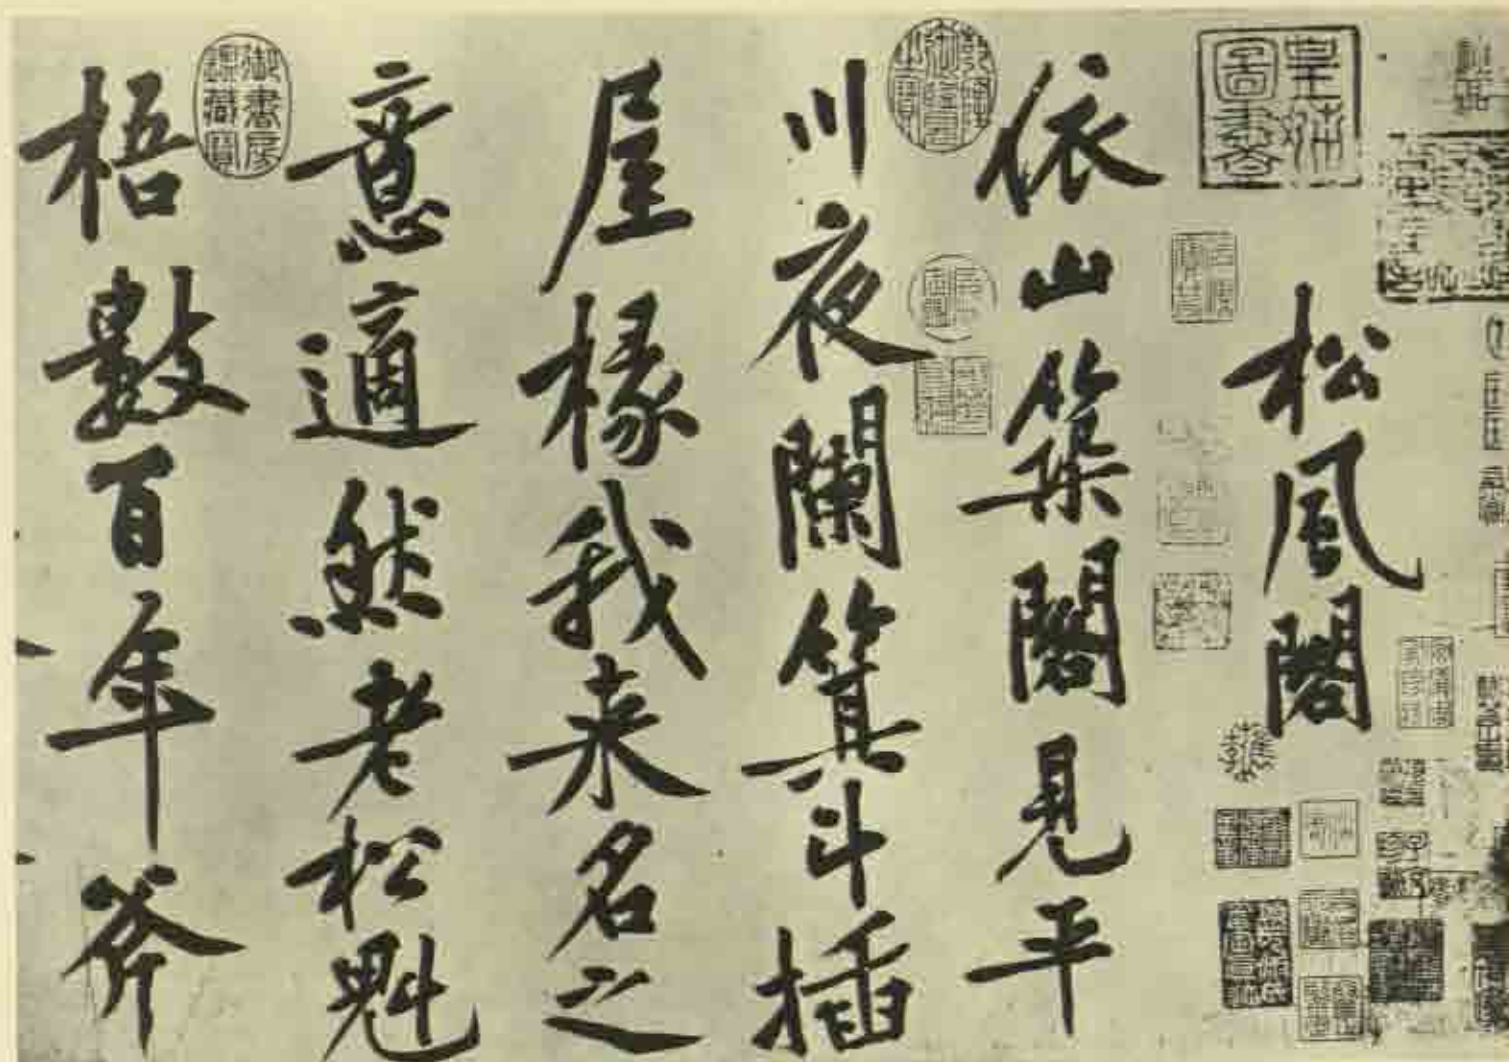 松風閣
依山築閣見平
川夜闌箕斗插
屋椽我来名之
意適然老松魁
梧數百年斧